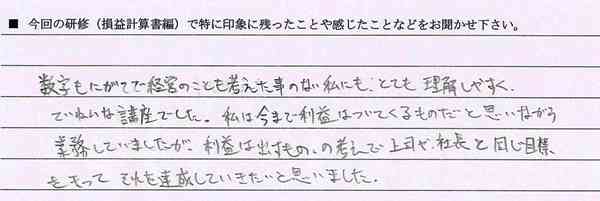 ■ 今回の研修（損益計算書編）で特に印象に残ったことや感じたことなどをお聞かせ下さい。
数字もにがてで経営のことも考えた事のない私にも、とても理解しやすく、
ていねいな講座でした。私は今まで利益はついてくるものだと思いながら
業務していましたが、利益は出すもの、の考えで上司や、社長と同じ目標
をもって それを達成していきたいと思いました。